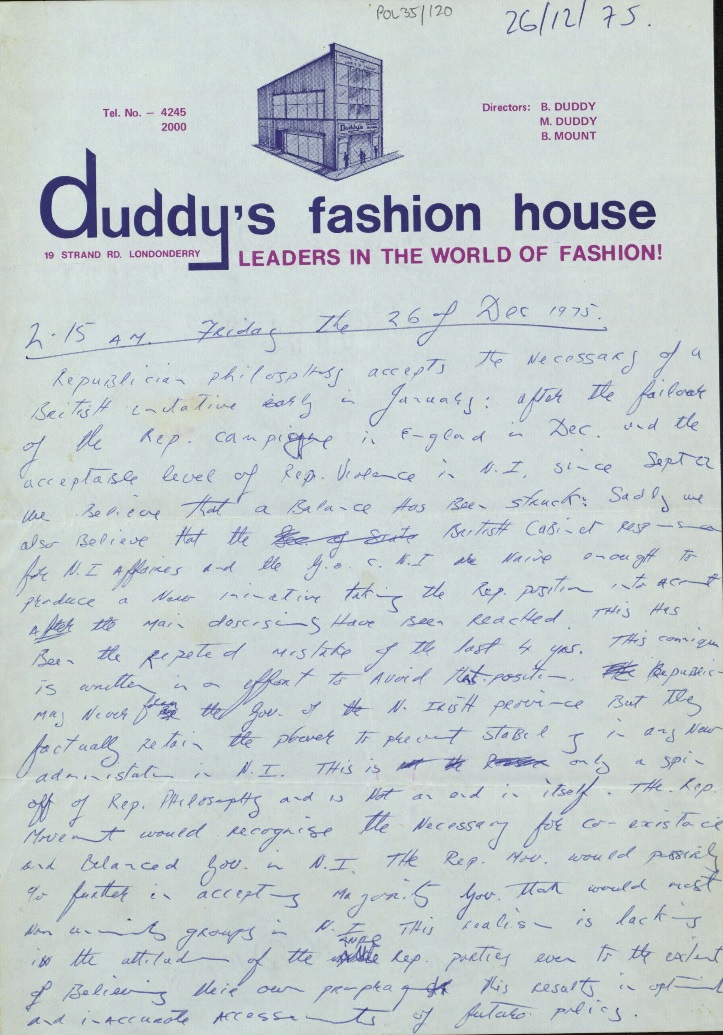 POL35/120
26/12/75.
Tel. No. – 4245
2000
Directors: B. DUDDY
M. DUDDY
B. MOUNT
Duddy's
duddy's fashion house
19 STRAND RD. LONDONDERRY
LEADERS IN THE WORLD OF FASHION!
2.15 AM. Friday the 26 of Dec 1975.
Republician philosphy accepts the Necessary of a
British initative early in January: after the failour
of the Rep. campigne in Englad in Dec. and the
acceptable level of Rep. Violence in N.I. since Sept 22
we Believe that a Balance Has Been struck: Sadly we
also Believe that the Sec of State British Cabinet
for N.I Affaires and the G.O.C. N.I are Naive enough to
produce a New iniative taking the Rep. position into
After the main descisions Have Been reached. THis Has
Been the Repeted mistake of the last 4 yrs. THis
is written in a effort to Avoid that position. Republic-
may Never the Gov. of the N. Irish province But they
factually retain the power to prevent in any New
administation in N.I. THis is only a spin
off of Rep. Philosophy and is Not an end in itself. THE Rep.
Movement would recognise the Necessary for co-existance
and Balanced Gov. in N.I. THE Rep. Mov. would possibly
go further in accepting Majority Gov. that would most
groups in N.I. THis realism is lacking
in the attitudes of the Rep. parties even to the extent
of Believing their own this results in
and inaccurate accessments of future policy.